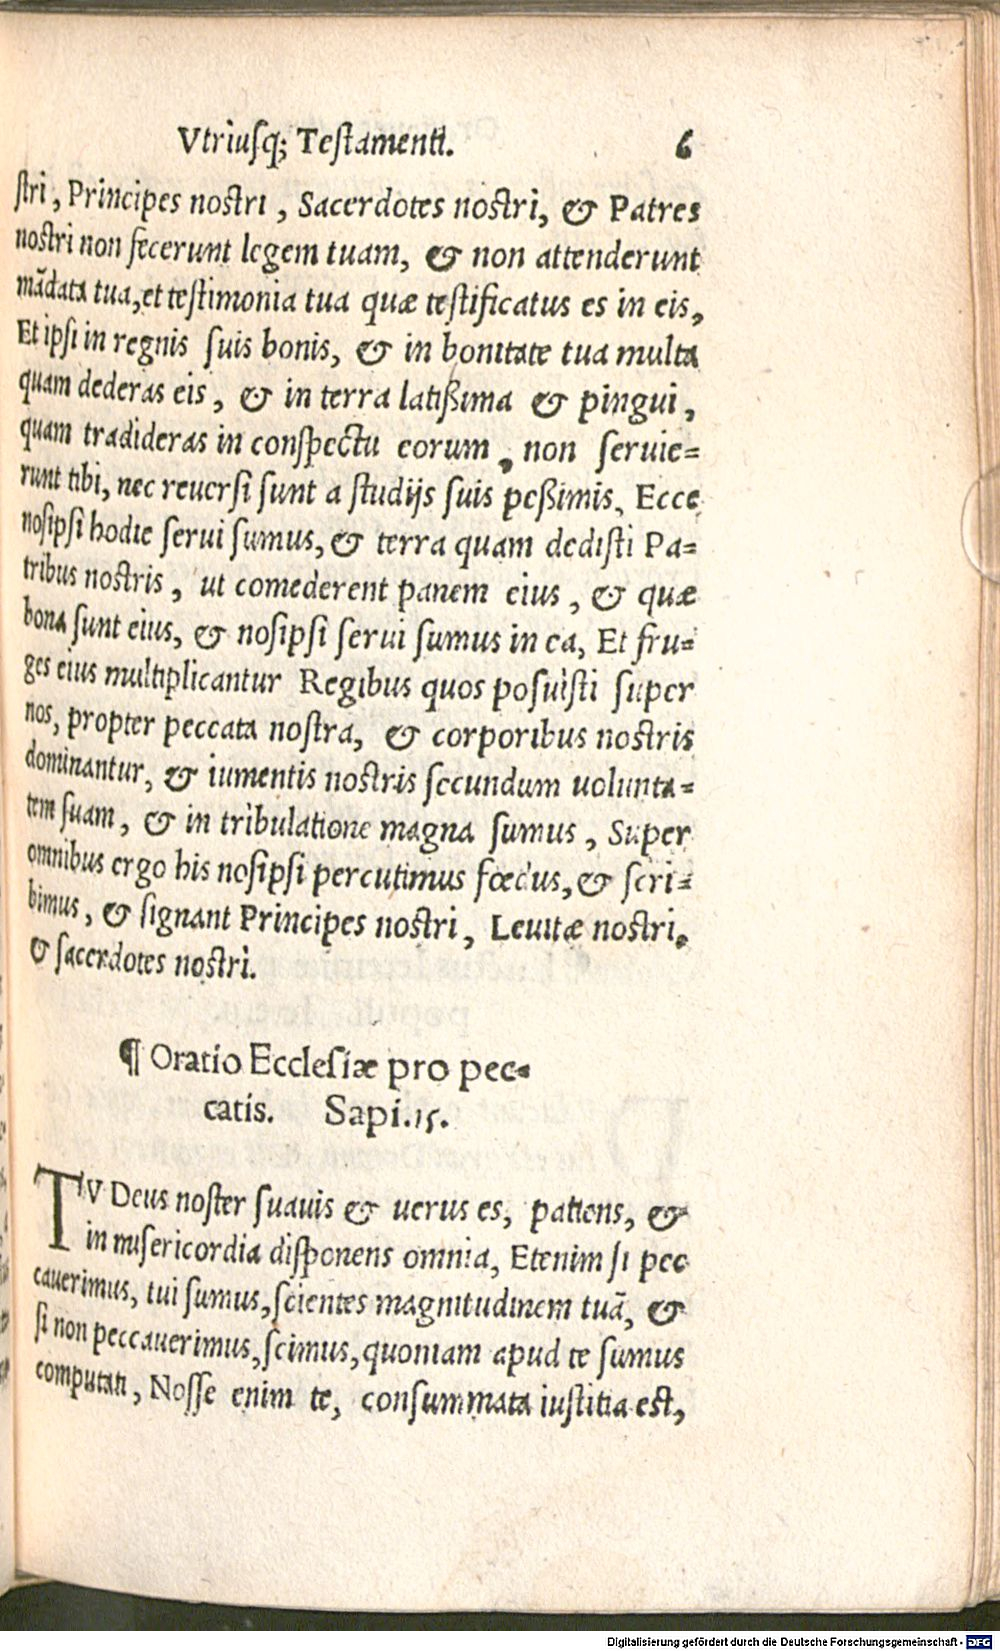 Vtriusq; Testamenti. 6
stri, Principes nostri, Sacerdotes nostri, & Patres
nostri non fecerunt legem tuam, & non attenderunt
mãdata tua, et testimonia tua quæ testificatus es in eis,
Et ipsi in regnis suis bonis, & in bonitate tua multa
quam dederas eis, & in terra latißima & pingui,
quam tradideras in conspectu eorum, non seruie=
runt tibi, nec reuersi sunt a studijs suis peßimis, Ecce
nosipsi hodie serui sumus, & terra quam dedisti Pa=
tribus nostris, ut comederent panem eius, & quæ
bona sunt eius, & nosipsi serui sumus in ea, Et fru=
ges eius multiplicantur Regibus quos posuisti super
nos, propter peccata nostra, & corporibus nostris
dominantur, & iumentis nostris secundum uolunta=
tem suam, & in tribulatione magna sumus, Super
omnibus ergo his nosipsi percutimus fœdus, & scri=
bimus, & signant Principes nostri, Leuitæ nostri,
& sacerdotes nostri.
¶ Oratio Ecclesiæ pro pec=
catis. Sapi.15.
TV Deus noster suauis & uerus es, patiens, &
in misericordia disponens omnia, Etenim si pec
cauerimus, tui sumus, scientes magnitudinem tuã, &
si non peccauerimus, scimus, quoniam apud te sumus
computati, Nosse enim te, consummata iustitia est,
Digitalisierung gefördert durch die Deutsche Forschungsgemeinschaft - DFG